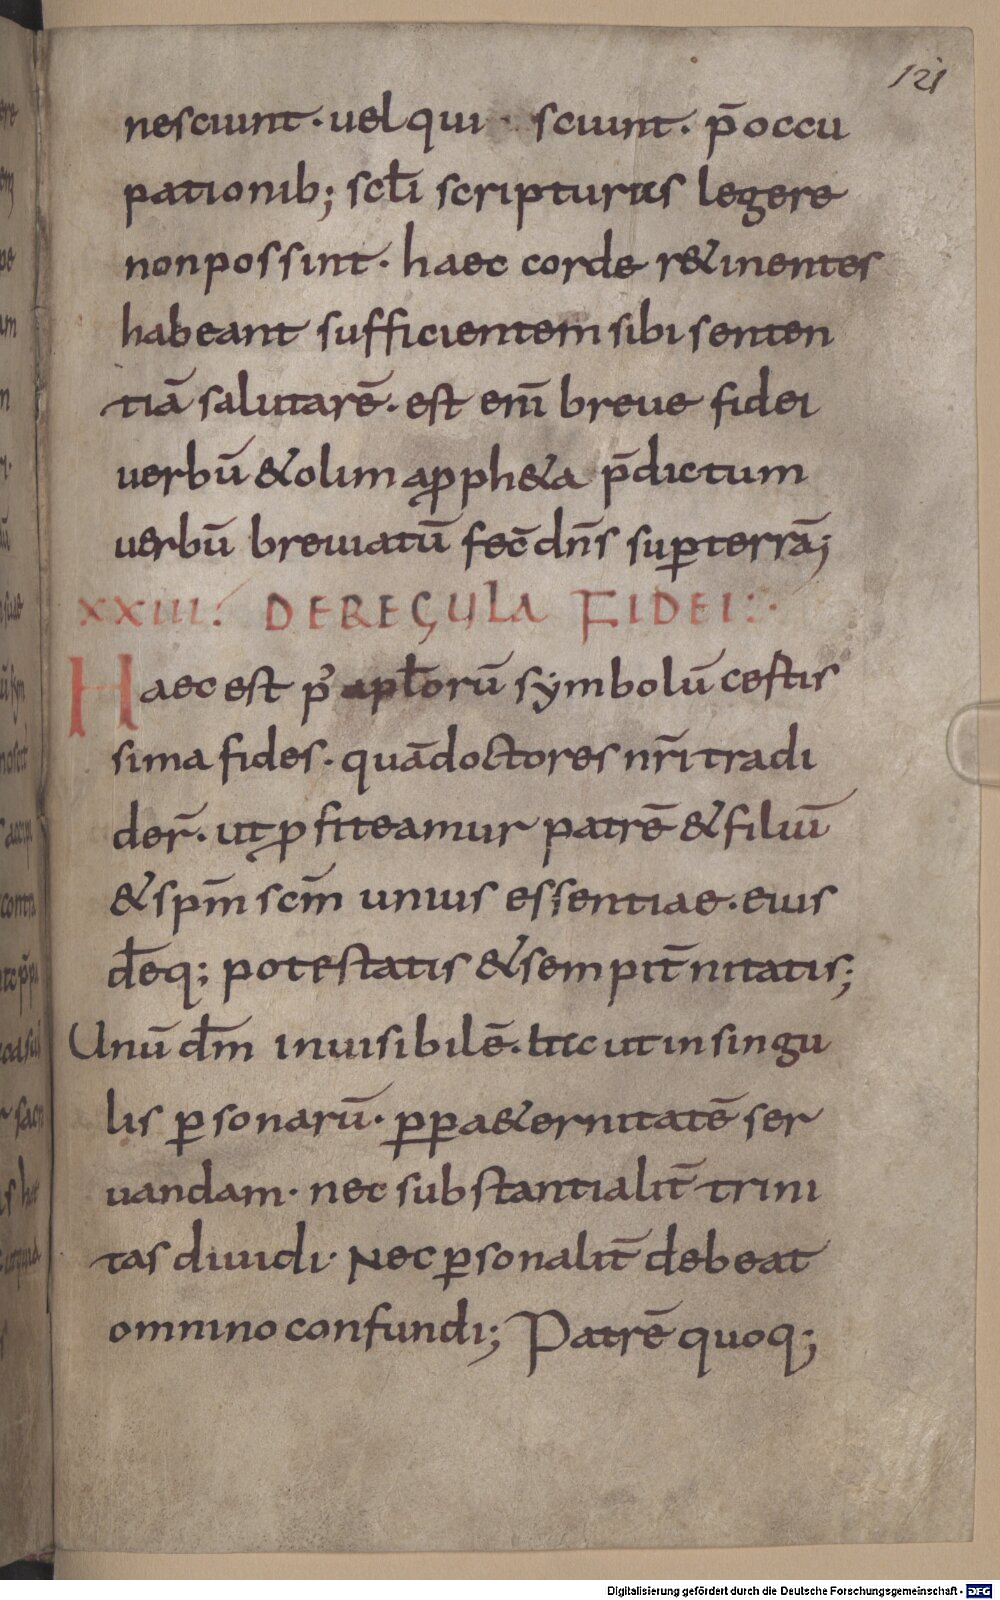 121
nesciunt· uel qui · sciunt· p̄occu
pationib; scłi scripturas legere
non possint· haec corde r&inentes
habeant sufficientem sibi senten
tiā salutarē· est enī breue fidei
uerbū & olim a prꝓph&a p̄dictum
uerbū breuiatū fec̄ dn̄s sup terrā;
XXIII. DE REGULA FIDEI:·
Haec est p' apłorū sẏmbolū certis
sima fides· quā doctores nr̄i tradi
der̄· ut ꝓfiteamur patrē & filiū
& sp̄m sc̄m unius essentiae· eius
dēq; potestatis & sempit̄nitatis;
Unū dm̄ inuisibilē· hic ut in singu
lis ꝑsonarū· ꝓpa &ernitatē ser
uandam· nec substantialit̄ trini
tas diuidi· Nec ꝑsonalit̄ debeat
omnino confundi; Patrē quoq;
Digitalisierung gefördert durch die Deutsche Forschungsgemeinschaft - DFG